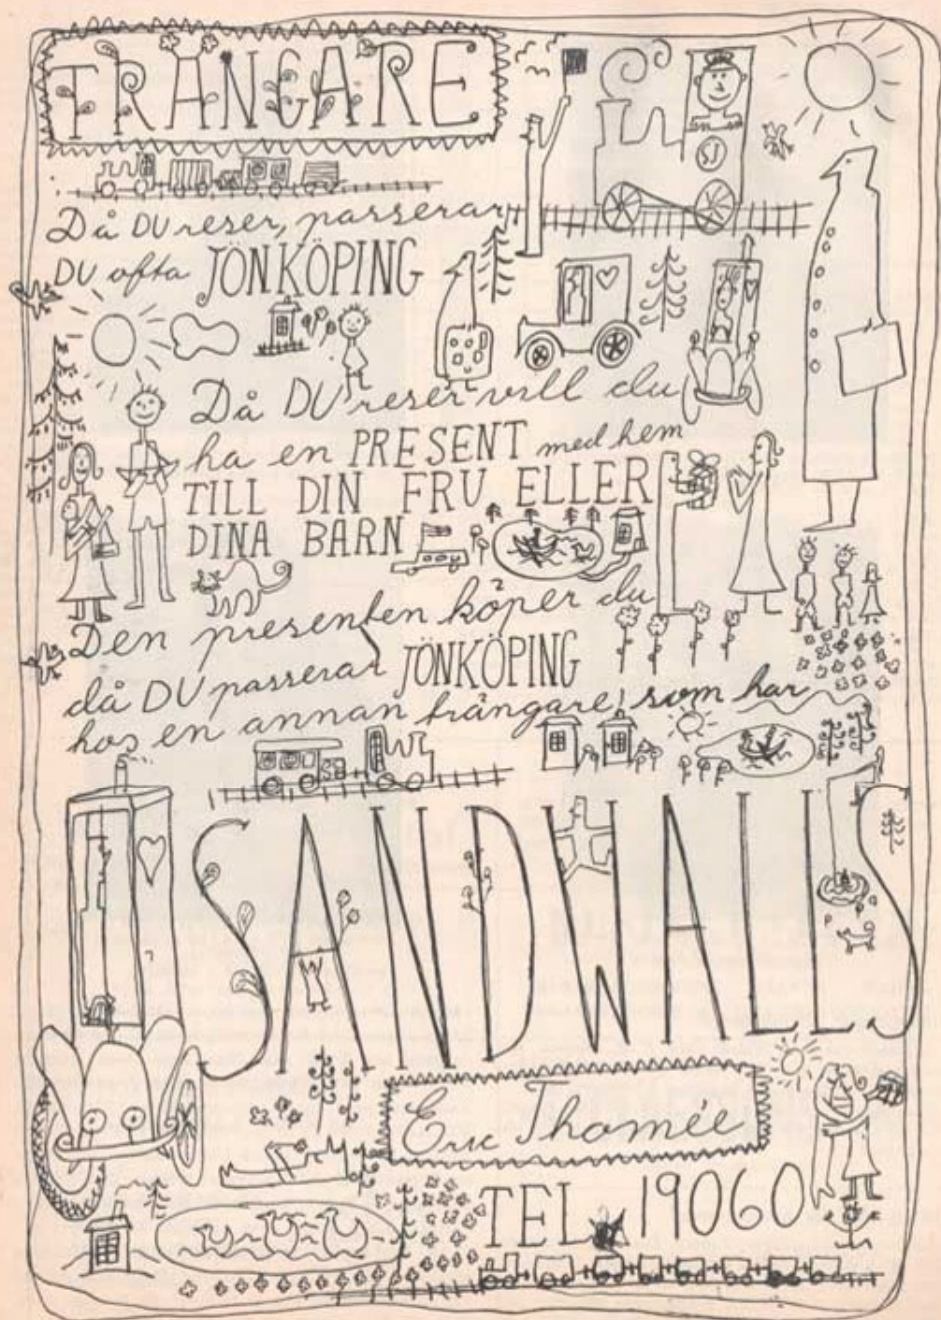 TRÄNGARE
SJ
Då DU reser, passerar
DU ofta JÖNKÖPING
Då DU reser vill du
ha en PRESENT med hem
TILL DIN FRU ELLER
DINA BARN
Den presenten köper du
då DU passerar JÖNKÖPING
hos en annan trängare, som har
SANDWALLS
Eric Thomée
TEL. 19060